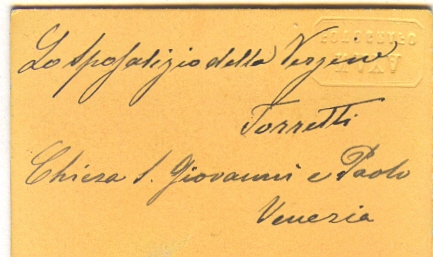 Lo Sposalizio della Vergine
Torretti
Chiesa S. Giovanni e Paolo
Venezia